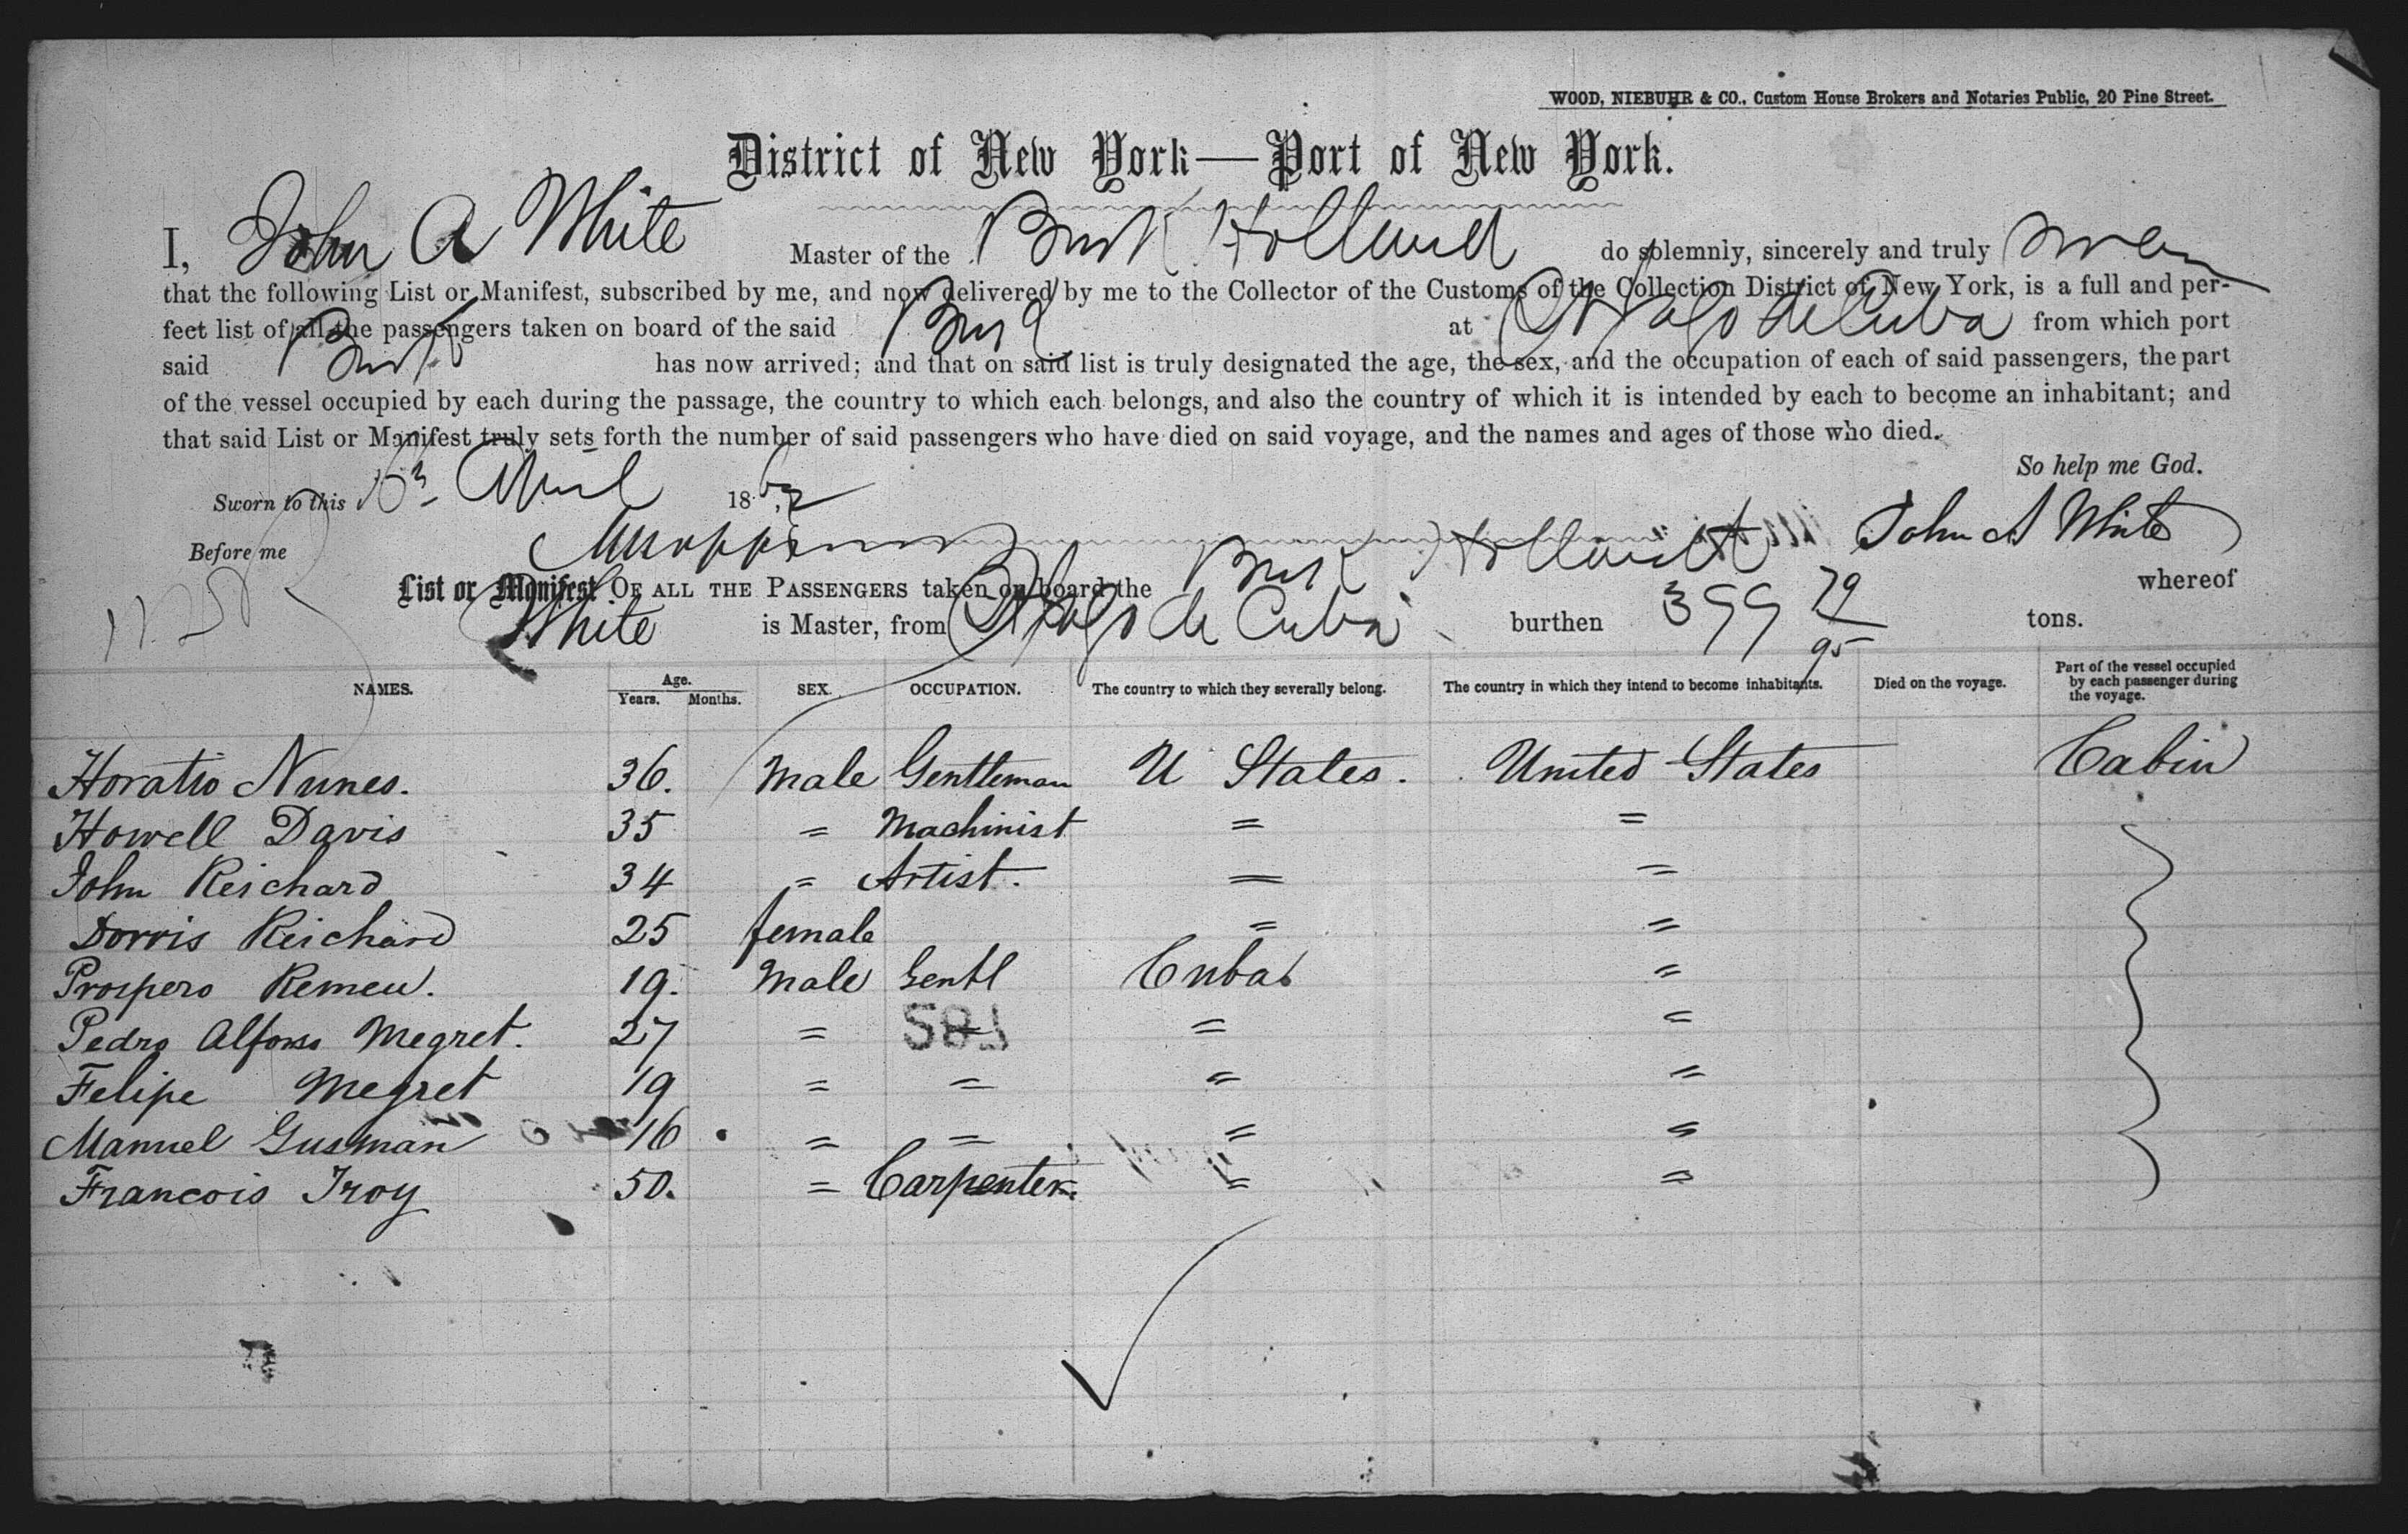 WOOD, NIEBUHR & CO., Custom House Brokers and Notaries Public, 20 Pine Street.
District of New York—Port of New York.
I, John A White Master of the Holland do solemnly, sincerely and truly
that the following List or Manifest, subscribed by me, and now delivered by me to the Collector of the Customs of the Collection District of New York, is a full and per-
fect list of all the passengers taken on board of the said at St Jago de Cuba from which port
said has now arrived; and that on said list is truly designated the age, the sex, and the occupation of each of said passengers, the part
of the vessel occupied by each during the passage, the country to which each belongs, and also the country of which it is intended by each to become an inhabitant; and
that said List or Manifest truly sets forth the number of said passengers who have died on said voyage, and the names and ages of those who died.
So help me God.
Sworn to this April 18
John A White
Before me
List or Manifest OF ALL THE PASSENGERS taken on board the Holland whereof
White is Master, from St Jago de Cuba burthen 399 79/95 tons.
NAMES. Age. Years. Months. SEX. OCCUPATION. The country to which they severally belong. The country in which they intend to become inhabitants. Died on the voyage. Part of the vessel occupied by each passenger during the voyage.
Horatio Nunes. 36. Male Gentleman U States. United States Cabin
Howell Davis 35 = Machinist = =
John Reichard 34 = Artist. = =
Dorris Reichard 25 female = =
Prospero Remeu. 19. Male Gentl Cuba =
Pedro Alfonso Megret. 27 = = = =
Felipe Megret 19 = = = =
Manuel Gusman 16 = = = =
Francois Troy 50. = Carpenter. = =